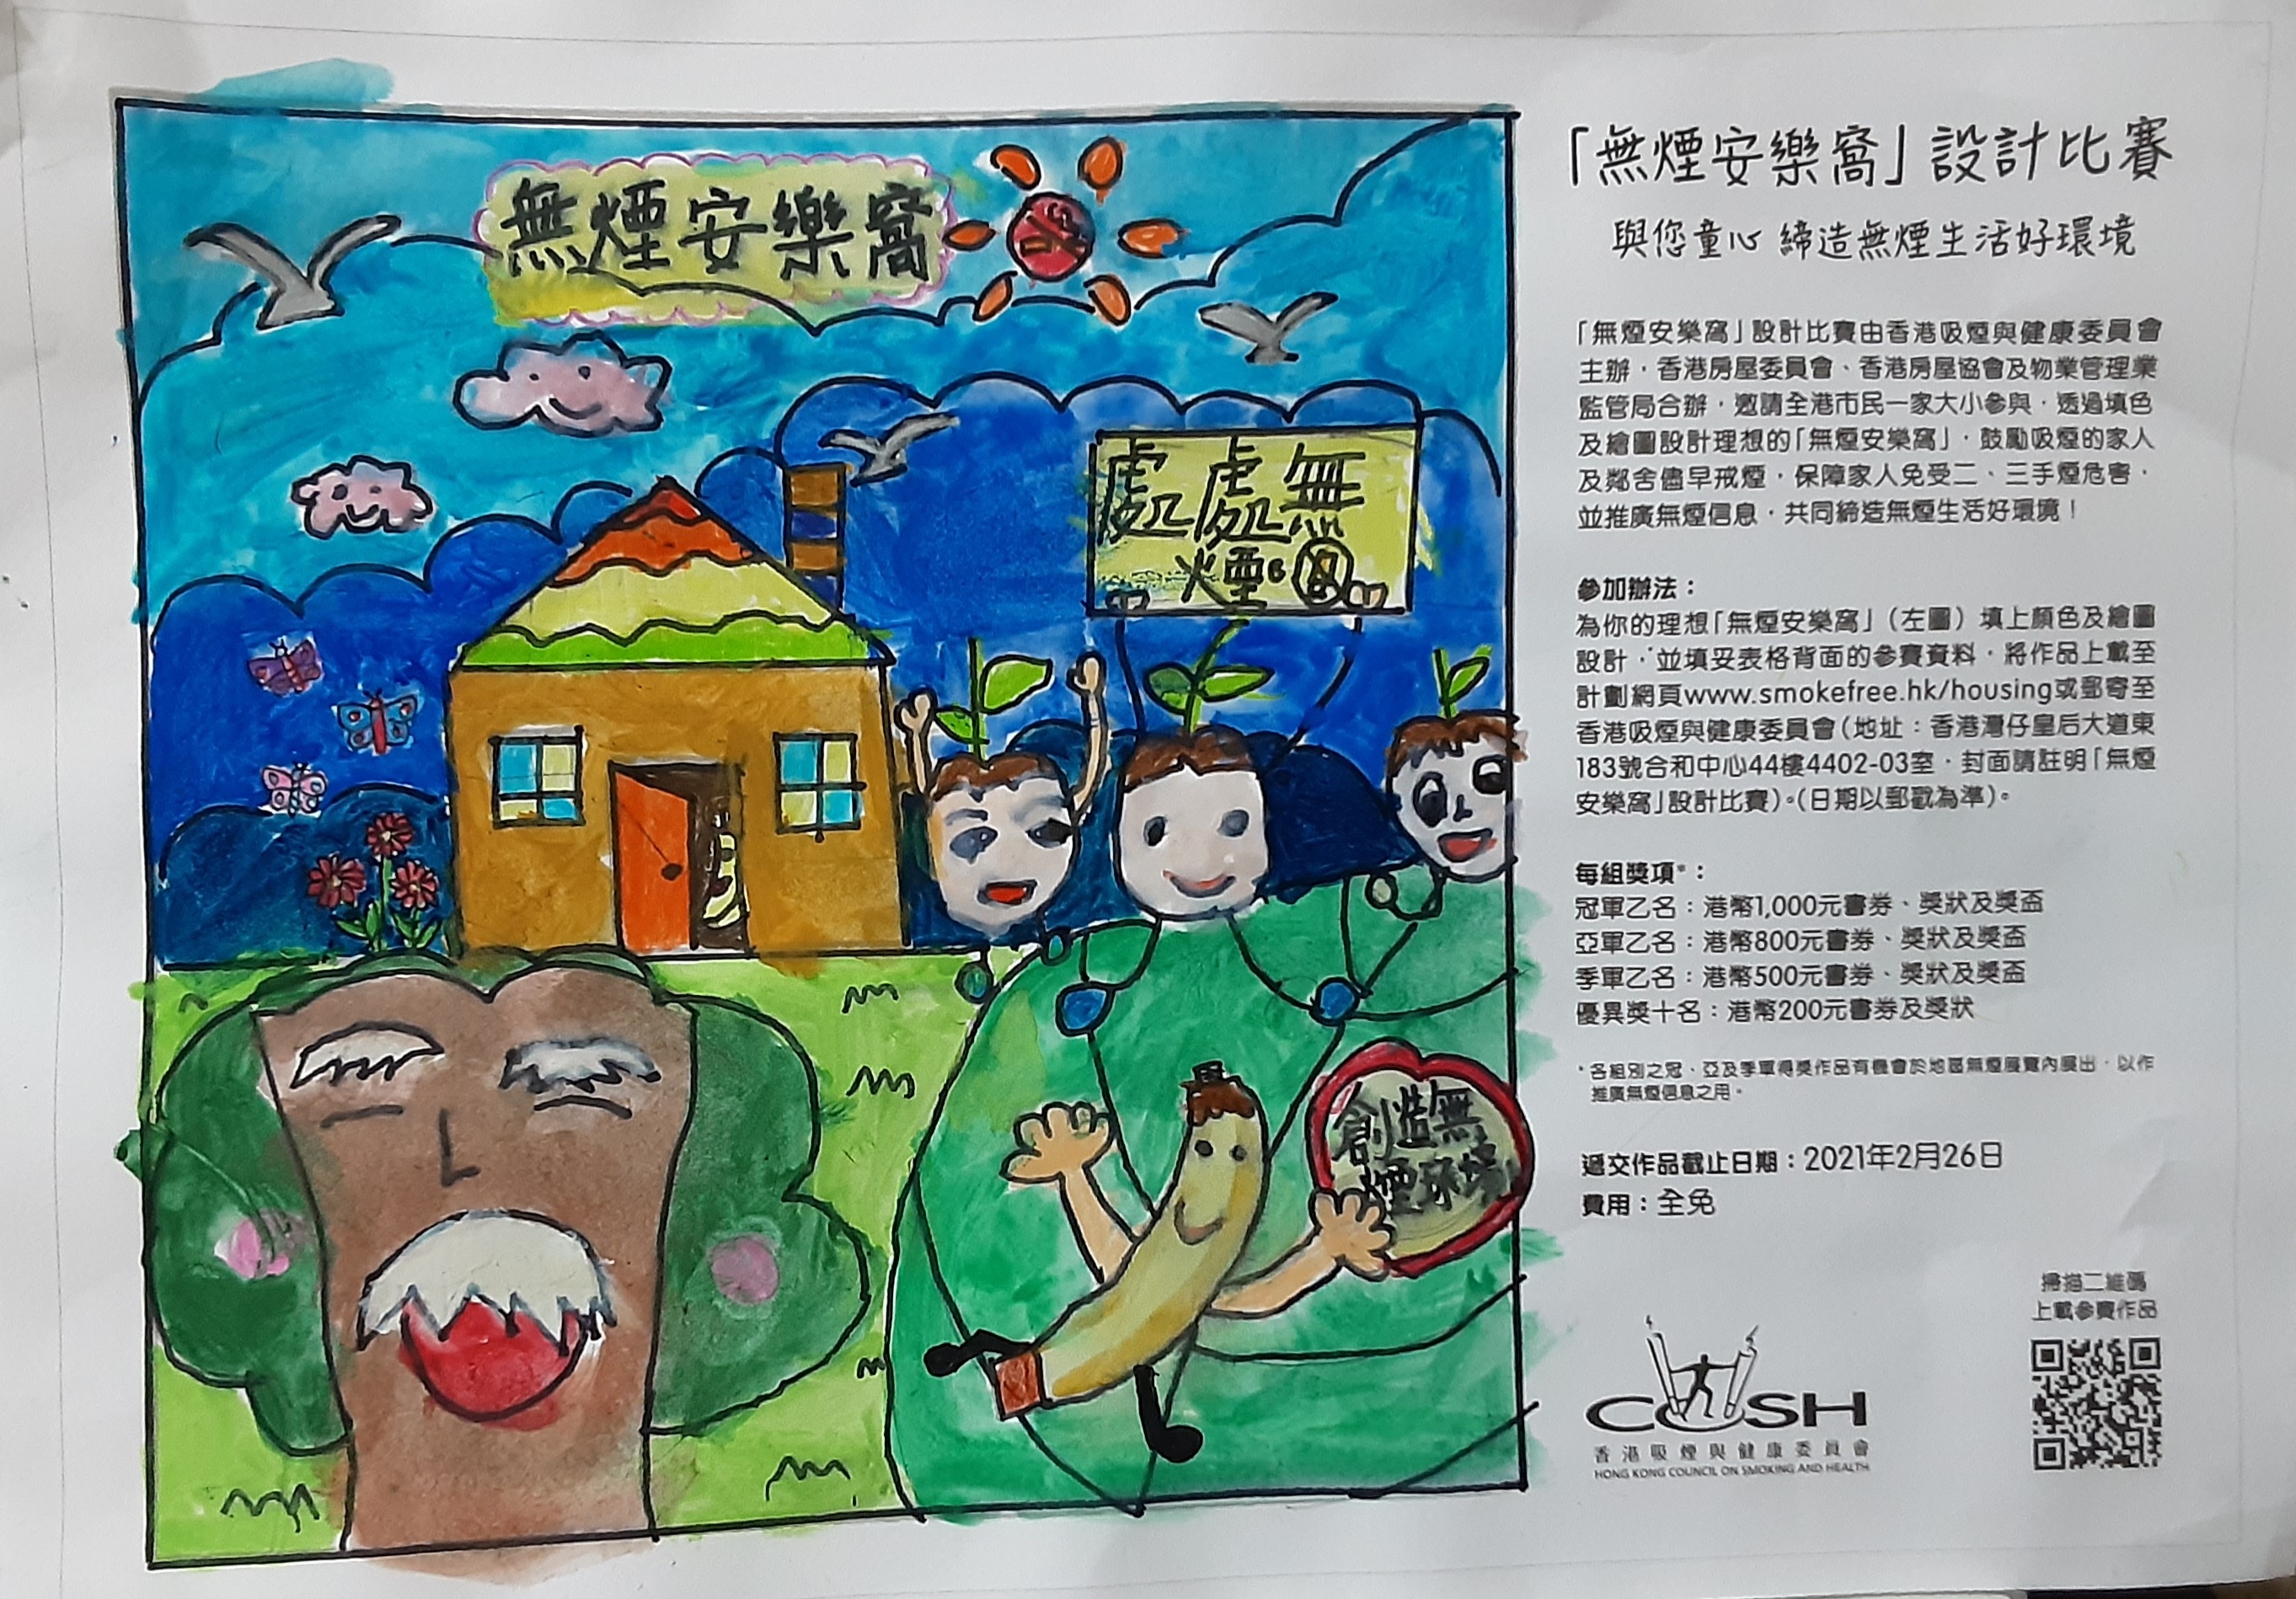 無煙安樂窩
處處無
煙。
創造無
煙環境
「無煙安樂窩」設計比賽
與您童心 締造無煙生活好環境
「無煙安樂窩」設計比賽由香港吸煙與健康委員會
主辦，香港房屋委員會、香港房屋協會及物業管理業
監管局合辦，邀請全港市民一家大小參與，透過填色
及繪圖設計理想的「無煙安樂窩」，鼓勵吸煙的家人
及鄰舍儘早戒煙，保障家人免受二、三手煙危害，
並推廣無煙信息，共同締造無煙生活好環境！
參加辦法：
為你的理想「無煙安樂窩」（左圖）填上顏色及繪圖
設計，並填妥表格背面的參賽資料，將作品上載至
計劃網頁www.smokefree.hk/housing或郵寄至
香港吸煙與健康委員會（地址：香港灣仔皇后大道東
183號合和中心44樓4402-03室，封面請註明「無煙
安樂窩」設計比賽）。（日期以郵戳為準）。
每組獎項*：
冠軍乙名：港幣1,000元書券、獎狀及獎盃
亞軍乙名：港幣800元書券、獎狀及獎盃
季軍乙名：港幣500元書券、獎狀及獎盃
優異獎十名：港幣200元書券及獎狀
*各組別之冠、亞及季軍得獎作品有機會於地區無煙展覽內展出，以作
推廣無煙信息之用。
遞交作品截止日期：2021年2月26日
費用：全免
掃描二維碼
上載參賽作品
COSH
香港吸煙與健康委員會
HONG KONG COUNCIL ON SMOKING AND HEALTH